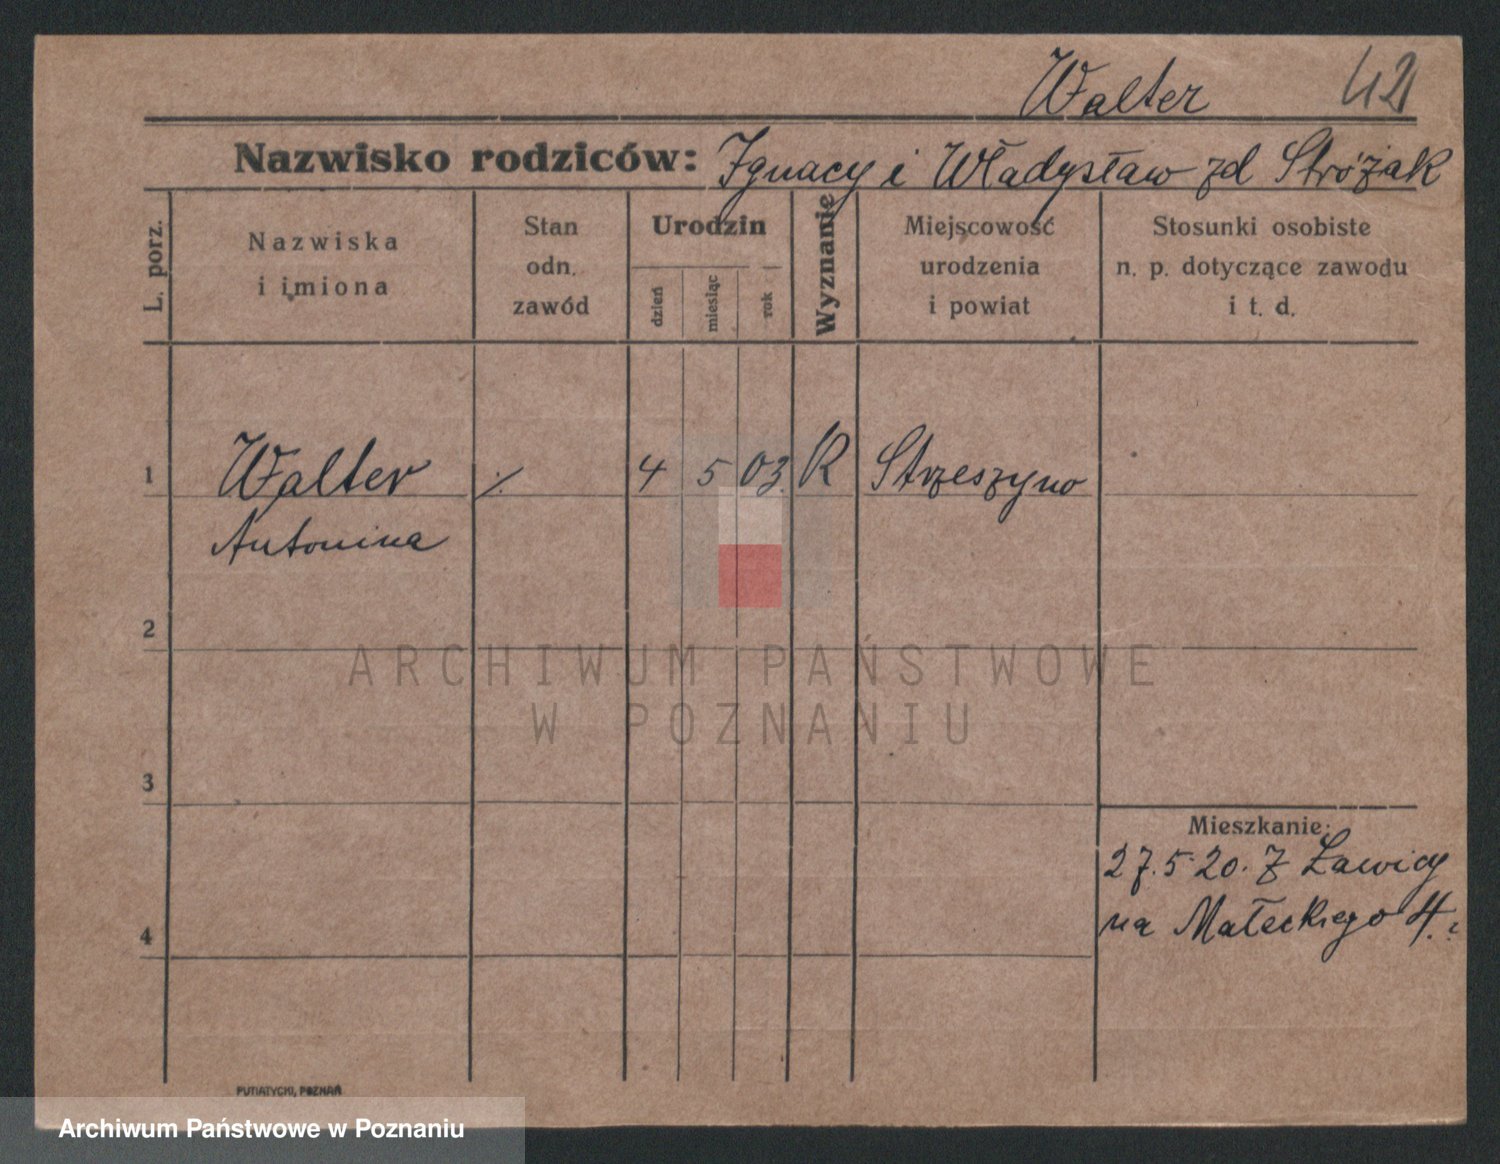 Walter 42
Nazwisko rodziców: Ignacy i Władysław zd Stróżak
L. porz.
Nazwiska
i imiona
Stan
odn.
zawód
Urodzin
dzień
miesiąc
rok
Wyznanie
Miejscowość
urodzenia
i powiat
Stosunki osobiste
n. p. dotyczące zawodu
i t. d.
1 Walter ·/. 4 5 03. R Strzeszyno
Antonina
2
ARCHIWUM PAŃSTWOWE
W POZNANIU
3
Mieszkanie:
27.5.20. Z Ławicy
4 na Małeckiego 4.
PUTIATYCKI, POZNAŃ
Archiwum Państwowe w Poznaniu